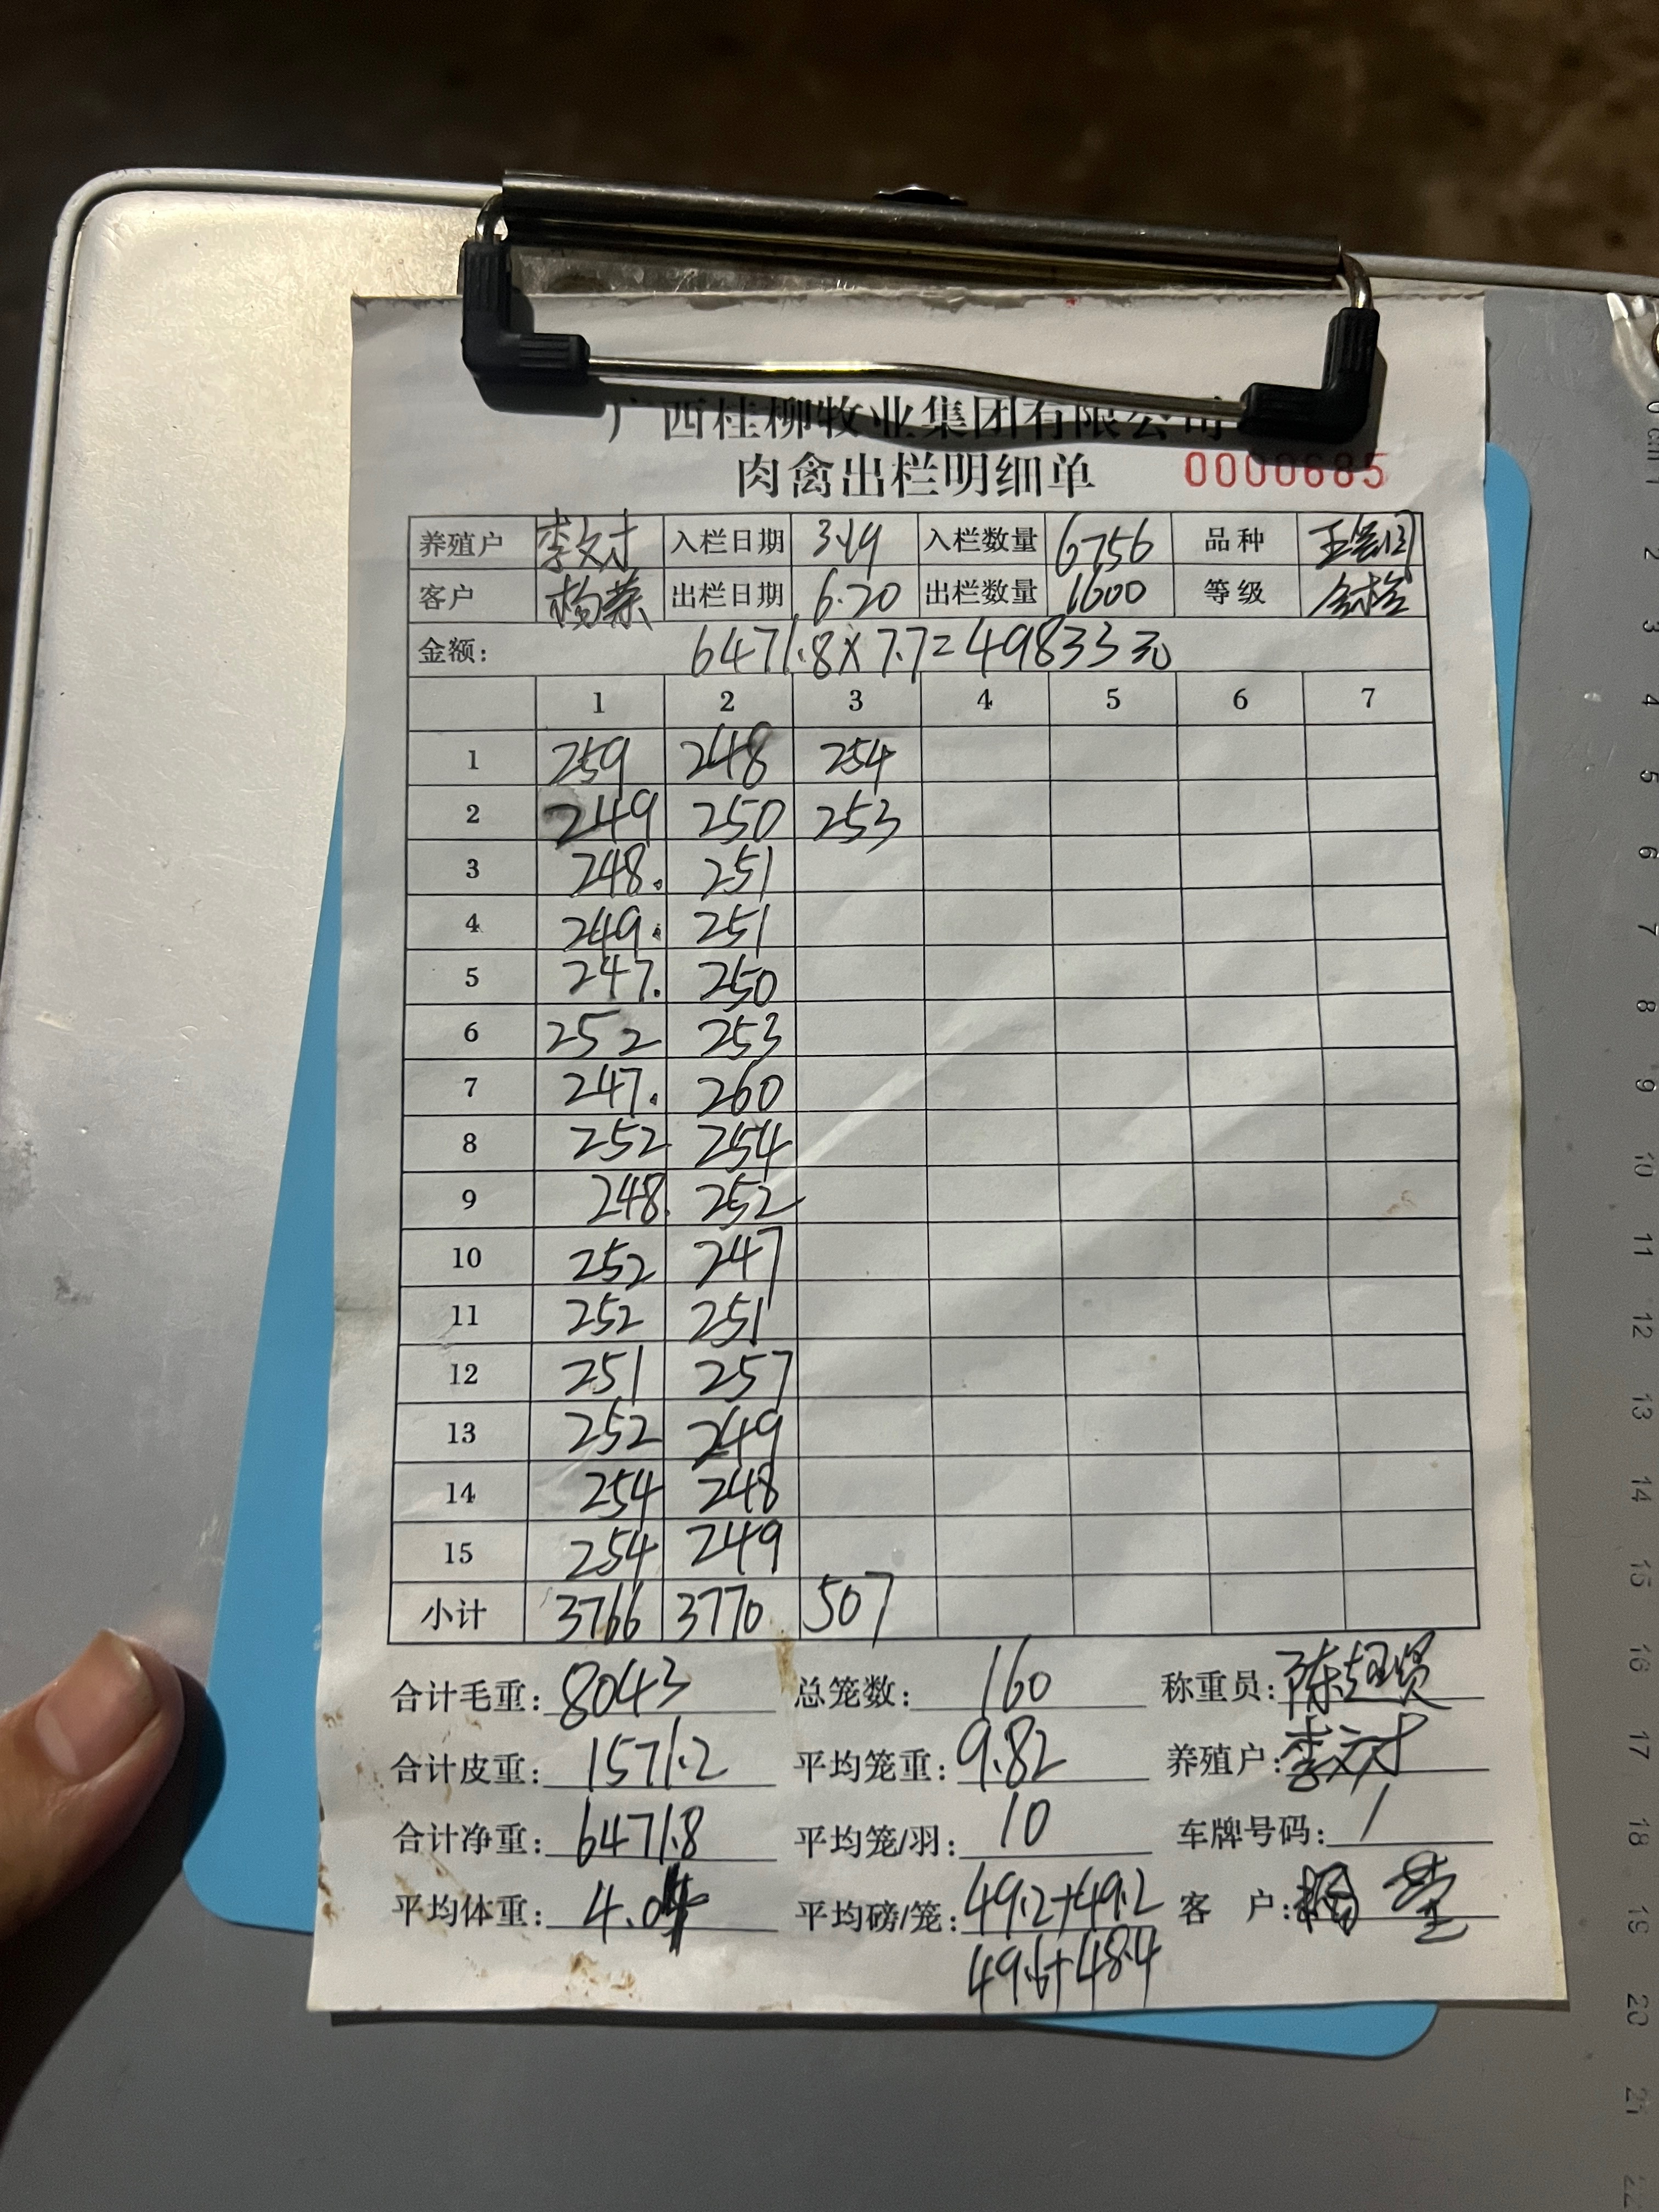 广西桂柳牧业集团有限公司
肉禽出栏明细单 0000685
养殖户 李文才 入栏日期 3.19 入栏数量 6756 品种
客户 杨荣 出栏日期 6.20 出栏数量 1600 等级
金额: 6471.8×7.7=49833元
1 2 3 4 5 6 7
1 259 248 254
2 249 250 253
3 248. 251
4 249. 251
5 247. 250
6 252 253
7 247. 260
8 252 254
9 248. 252
10 252 247
11 252 251
12 251 257
13 252 249
14 254 248
15 254 249
小计 3766 3770 507
合计毛重: 8043 总笼数: 160 称重员: 陈
合计皮重: 1571.2 平均笼重: 9.82 养殖户: 李文才
合计净重: 6471.8 平均笼/羽: 10 车牌号码: /
平均体重: 4.04 平均磅/笼: 49.2+49.2 客 户:
49.6+48.4